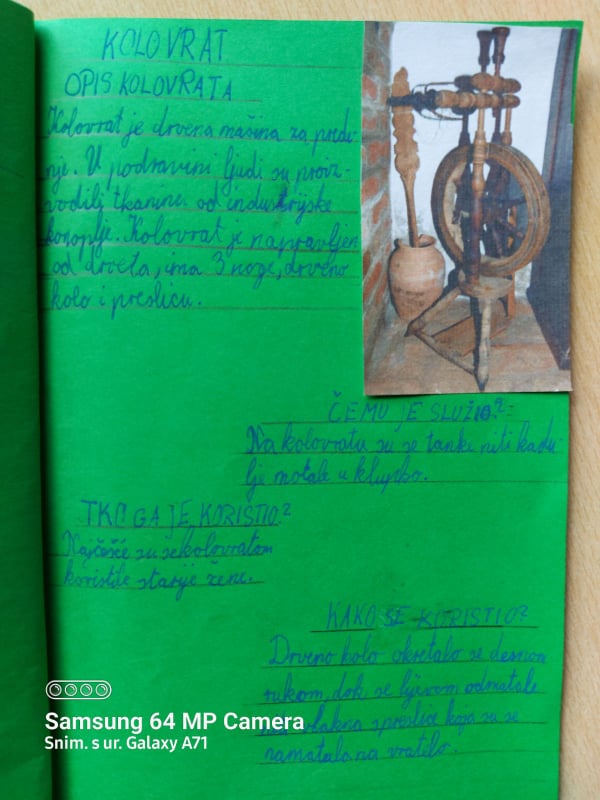 KOLOVRAT
OPIS KOLOVRATA
Kolovrat je drvena mašina za prede-
nje. U podravini ljudi su proiz-
vodili tkanine od industrijske
konoplje. Kolovrat je napravljen
od drveta, ima 3 noge, drveno
kolo i preslicu.
ČEMU JE SLUŽIO?
Na kolovratu su se tanke niti kadu-
lje motale u klupko.
TKO GA JE KORISTIO?
Najčešće su se kolovratom
koristile starije žene.
KAKO SE KORISTIO?
Drveno kolo okretalo se desnom
rukom, dok se lijevom odmatala
vlakna s preslice koja su se
namatala na vratilo.
Samsung 64 MP Camera
Snim. s ur. Galaxy A71